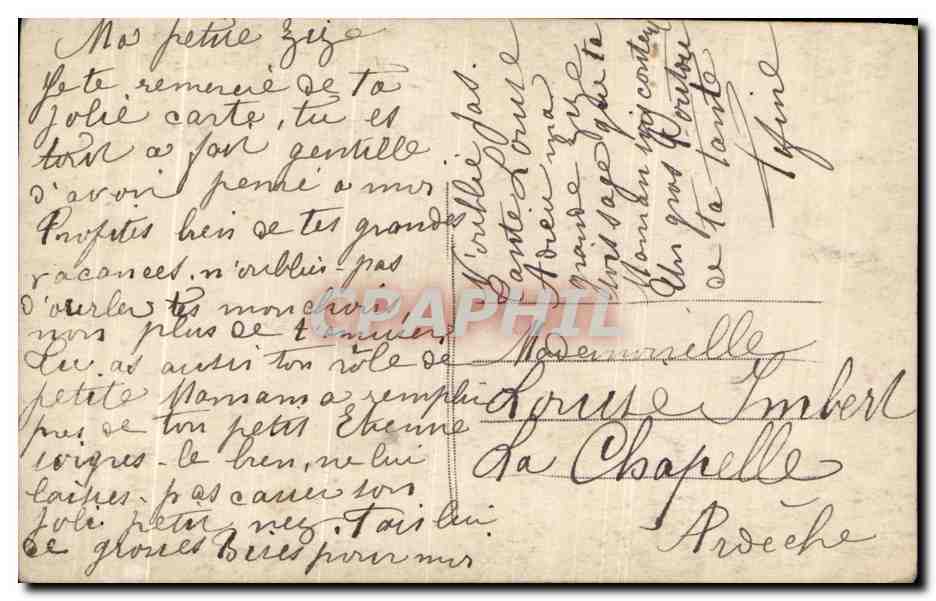 Ma petite Zize
Je te remercie de ta
jolie carte, tu es
tout a fait gentille
d'avoir pensé a moi
Profites bien de tes grandes
vacances. n'oublies-pas
d'ourler tes mouchoirs
non plus de t'amuser,
tu as aussi ton rôle de
petite Maman a remplir
près de ton petit Etienne
soignes-le bien, ne lui
laisses-pas casser son
joli petit nez. Fais lui
de grosses Bises pour moi
N'oublie pas
Tante Louise
Adieu ma
grande Zize
sois sage que ta
Maman soit contente
Un gros Toutou
de ta tante
Fifine
Mademoiselle
Louise Imbert
La Chapelle
Ardèche
CPAPHIL